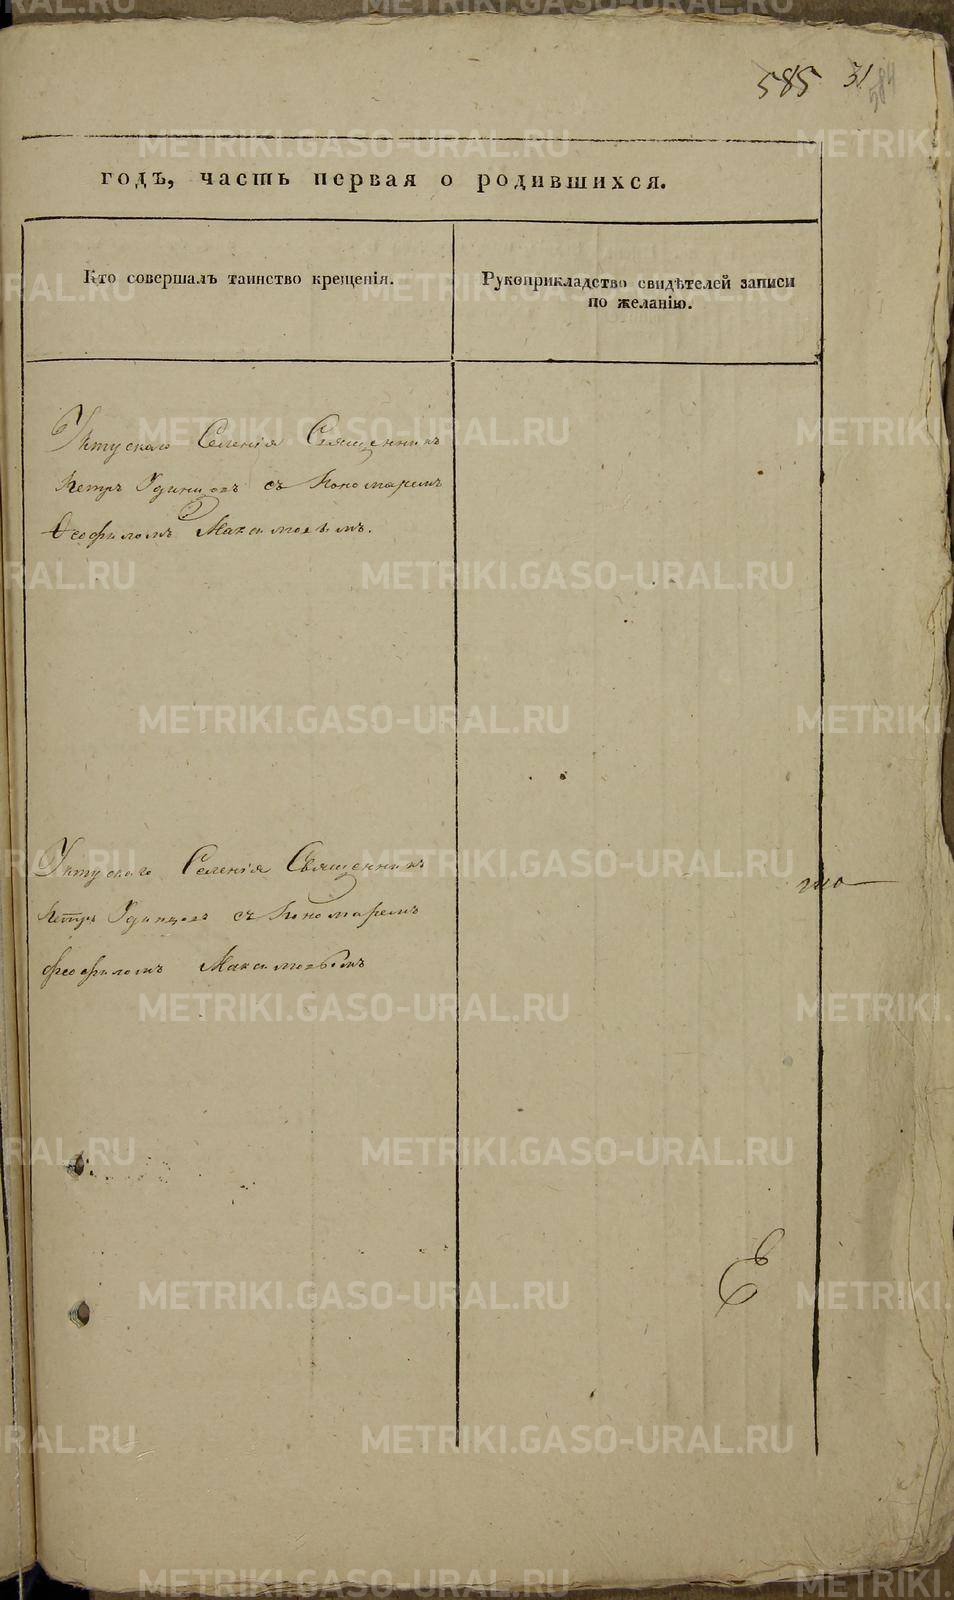 585 31
584
годъ, часть первая о родившихся.
Кто совершалъ таинство крещенія.
Рукоприкладство свидѣтелей записи
по желанію.
Уктускаго Селенія Священникъ
Петръ Удинцовъ съ Пономаремъ
Ѳеофиломъ Максимовымъ.
Уктускаго Селенія Священникъ
Петръ Удинцовъ съ Пономаремъ
Феофиломъ Максимовымъ
METRIKI.GASO-URAL.RU